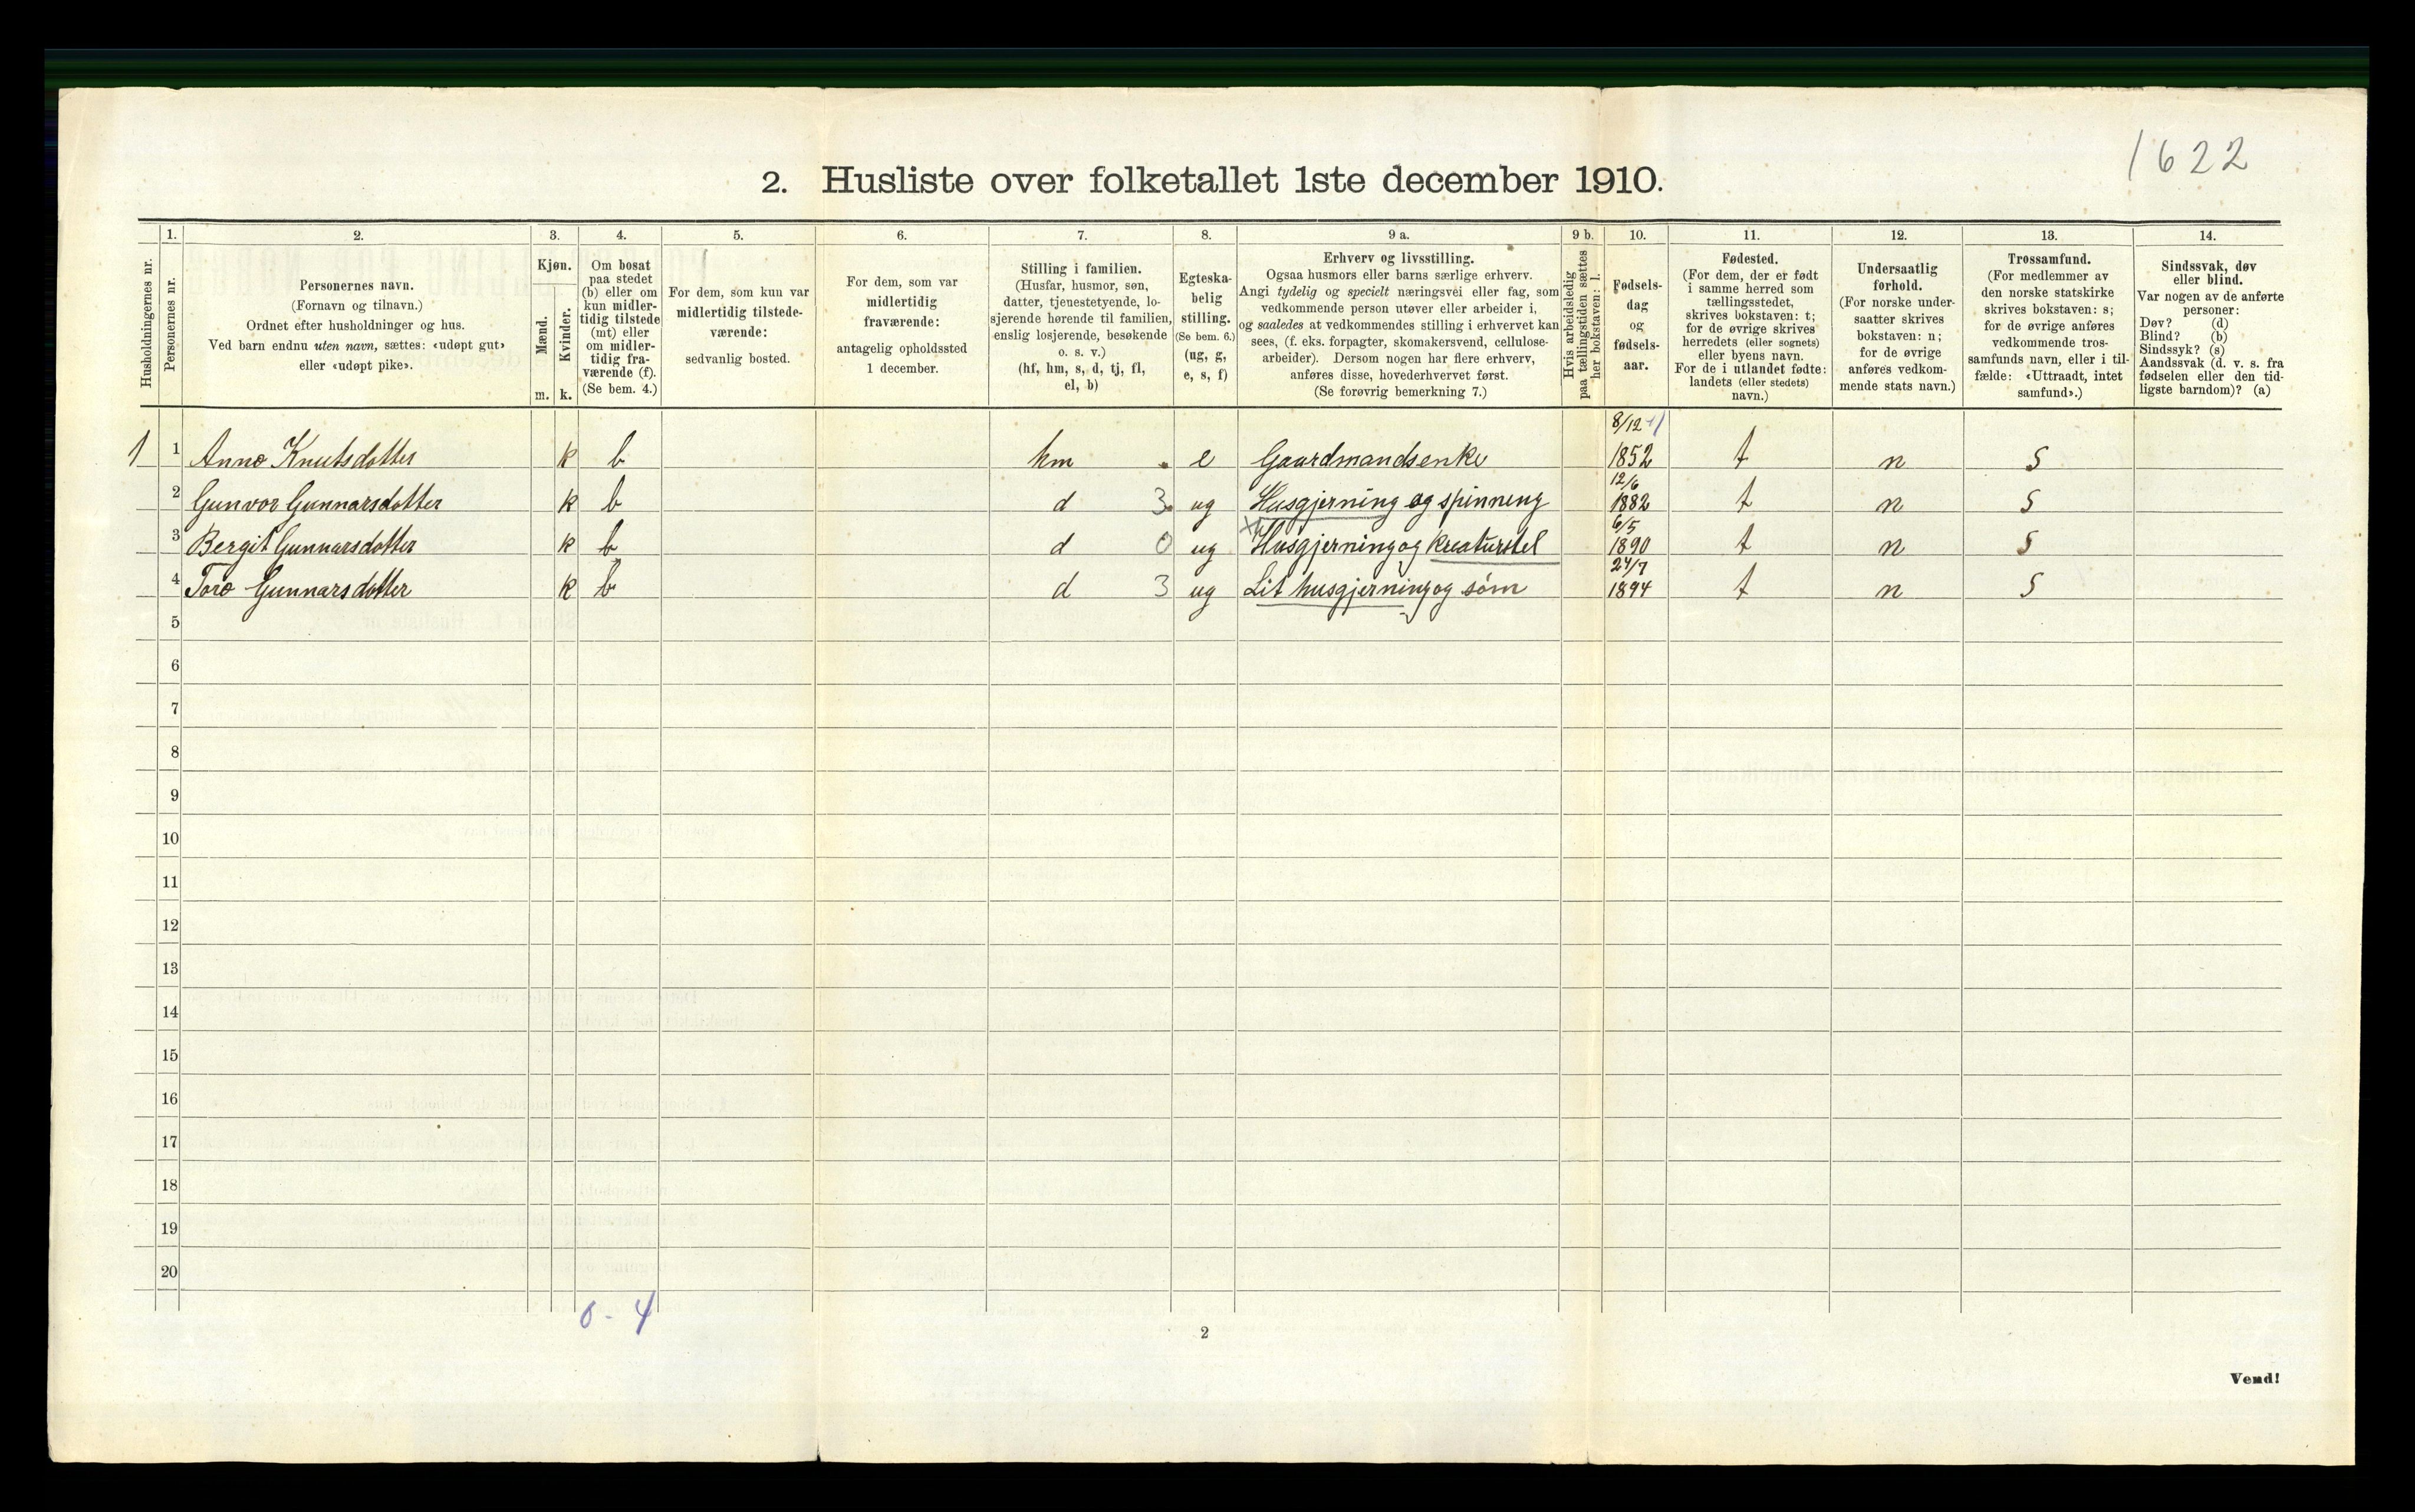 1622
2. Husliste over folketallet 1ste december 1910.
Husholdningernes nr.
1.
Personernes nr.
2.
Personernes navn.
(Fornavn og tilnavn.)
Ordnet efter husholdninger og hus.
Ved barn endnu uten navn, sættes: «udøpt gut»
eller «udøpt pike».
3.
Kjøn.
Mænd.
Kvinder.
m. k.
4.
Om bosat
paa stedet
(b) eller om
kun midler-
tidig tilstede
(mt) eller
om midler-
tidig fra-
værende (f).
(Se bem. 4.)
5.
For dem, som kun var
midlertidig tilstede-
værende:
sedvanlig bosted.
6.
For dem, som var
midlertidig
fraværende:
antagelig opholdssted
1 december.
7.
Stilling i familien.
(Husfar, husmor, søn,
datter, tjenestetyende, lo-
sjerende hørende til familien,
enslig losjerende, besøkende
o. s. v.)
(hf, hm, s, d, tj, fl,
el, b)
8.
Egteska-
belig
stilling.
(Se bem. 6.)
(ug, g,
e, s, f)
9 a.
Erhverv og livsstilling.
Ogsaa husmors eller barns særlige erhverv.
Angi tydelig og specielt næringsvei eller fag, som
vedkommende person utøver eller arbeider i,
og saaledes at vedkommendes stilling i erhvervet kan
sees, (f. eks. forpagter, skomakersvend, cellulose-
arbeider). Dersom nogen har flere erhverv,
anføres disse, hovederhvervet først.
(Se forøvrig bemerkning 7.)
9 b.
Hvis arbeidsledig
paa tællingstiden sættes
her bokstaven: l.
10.
Fødsels-
dag
og
fødsels-
aar.
11.
Fødested.
(For dem, der er født
i samme herred som
tællingsstedet,
skrives bokstaven: t;
for de øvrige skrives
herredets (eller sognets)
eller byens navn.
For de i utlandet fødte:
landets (eller stedets)
navn.)
12.
Undersaatlig
forhold.
(For norske under-
saatter skrives
bokstaven: n;
for de øvrige
anføres vedkom-
mende stats navn.)
13.
Trossamfund.
(For medlemmer av
den norske statskirke
skrives bokstaven: s;
for de øvrige anføres
vedkommende tros-
samfunds navn, eller i til-
fælde: «Uttraadt, intet
samfund».)
14.
Sindssvak, døv
eller blind.
Var nogen av de anførte
personer:
Døv? (d)
Blind? (b)
Sindssyk? (s)
Aandssvak (d. v. s. fra
fødselen eller den tid-
ligste barndom)? (a)
1 1 Anne Knutsdotter k b hm e Gaardmandsenke 8/12 1852 t n s
2 Gunvor Gunnarsdotter k b d 3 ug Husgjerning og spinning 12/6 1882 t n s
3 Bergit Gunnarsdotter k b d 0 ug Husgjerning og kreaturstel 6/5 1890 t n s
4 Toro Gunnarsdotter k b d 3 ug Lit husgjerning og søm 24/7 1894 t n s
5
6
7
8
9
10
11
12
13
14
15
16
17
18
19
20
0 - 4
2
Vend!